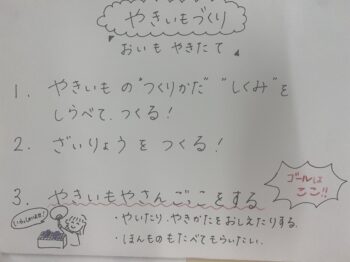 やきいもづくり
おいも やきたて
1. やきいもの"つくりかた" "しくみ"を
しらべて、つくる!
2. ざいりょうをつくる!
3. やきいもやさんごっこをする
ゴールは
ここ!!
・やいたり、やきかたをおしえたりする。
・ほんものもたべてもらいたい。